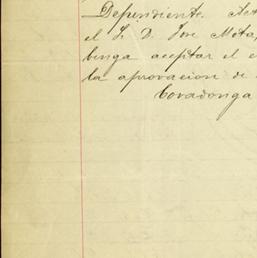 Dependiente.
el Sr. D. Jose Mota,
benga aceptar el
la aprovacion de
Covadonga